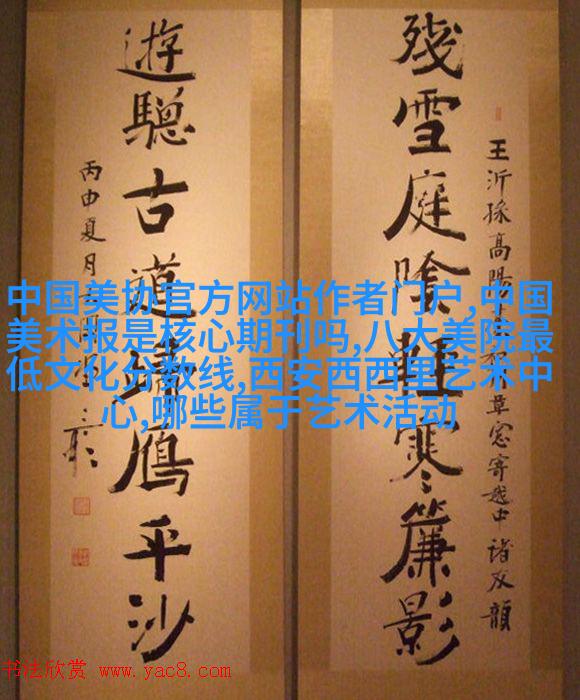 王沂孫高陽
草窓寄越中諸友韻
殘雪庭陰輕寒簾影
遊驄古道歸鴈平沙
丙申夏月
中国美协官方网站作者门户,中国
美术报是核心期刊吗,八大美院最
低文化分数线,西安西西里艺术中
心,哪些属于艺术活动
书法欣赏 www.yac8.com